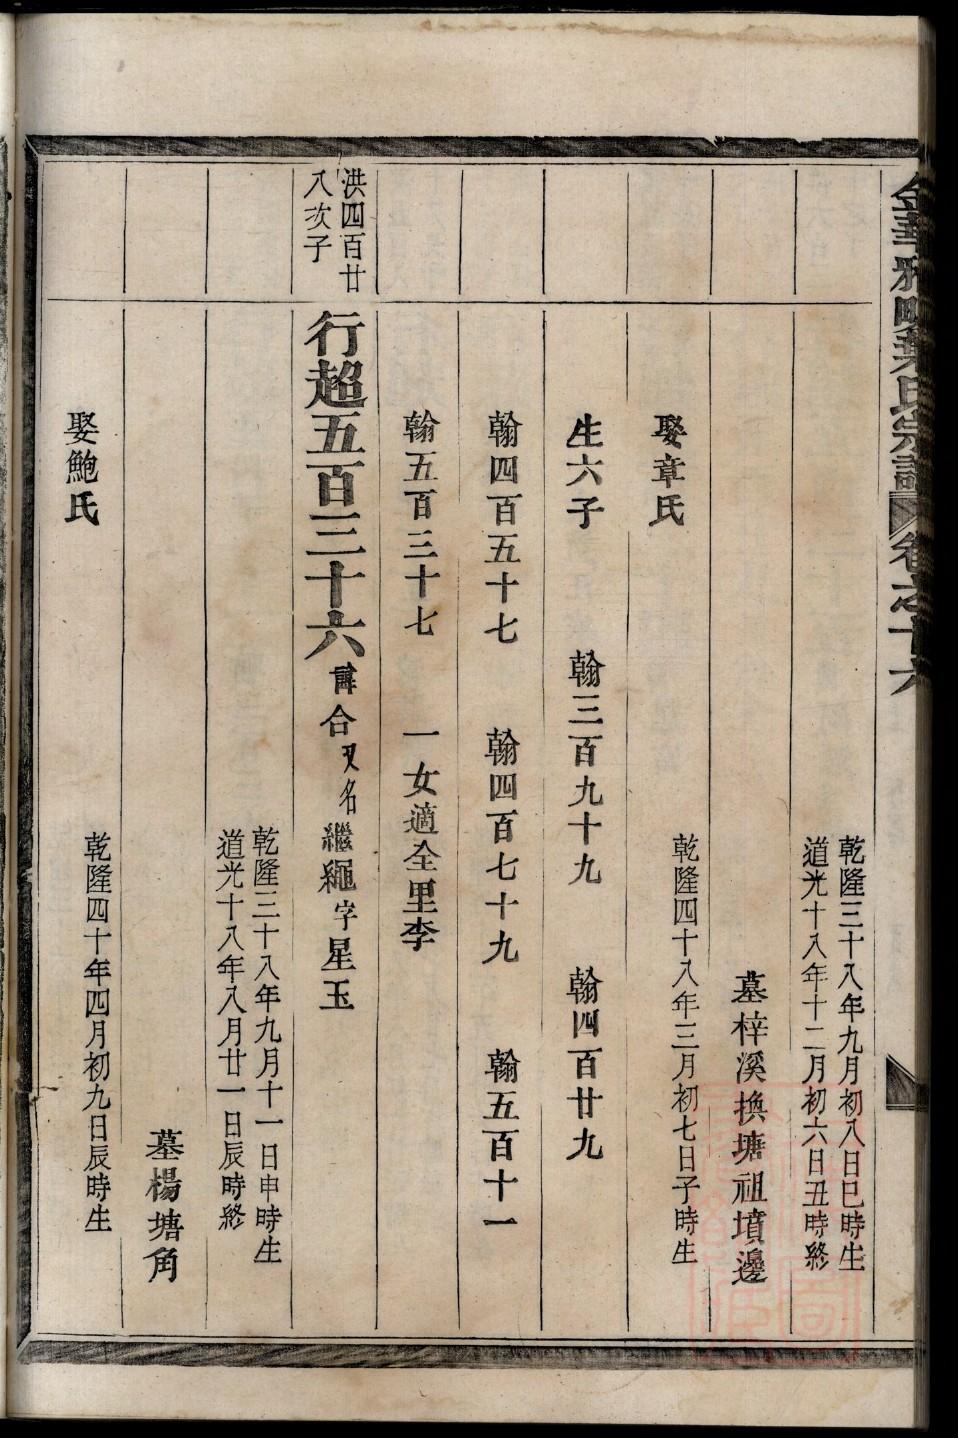 金華雅畈葉氏宗譜 卷之十六
乾隆三十八年九月初八日巳時生
道光十八年十二月初六日丑時終
墓梓溪換塘祖墳邊
娶章氏
乾隆四十八年三月初七日子時生
生六子 翰三百九十九 翰四百廿九
翰四百五十七 翰四百七十九 翰五百十一
翰五百三十七 一女適仝里李
洪四百廿
八次子
行超五百三十六 諱合又名繼繩字星玉
乾隆三十八年九月十一日申時生
道光十八年八月廿一日辰時終
墓楊塘角
娶鮑氏
乾隆四十年四月初九日辰時生